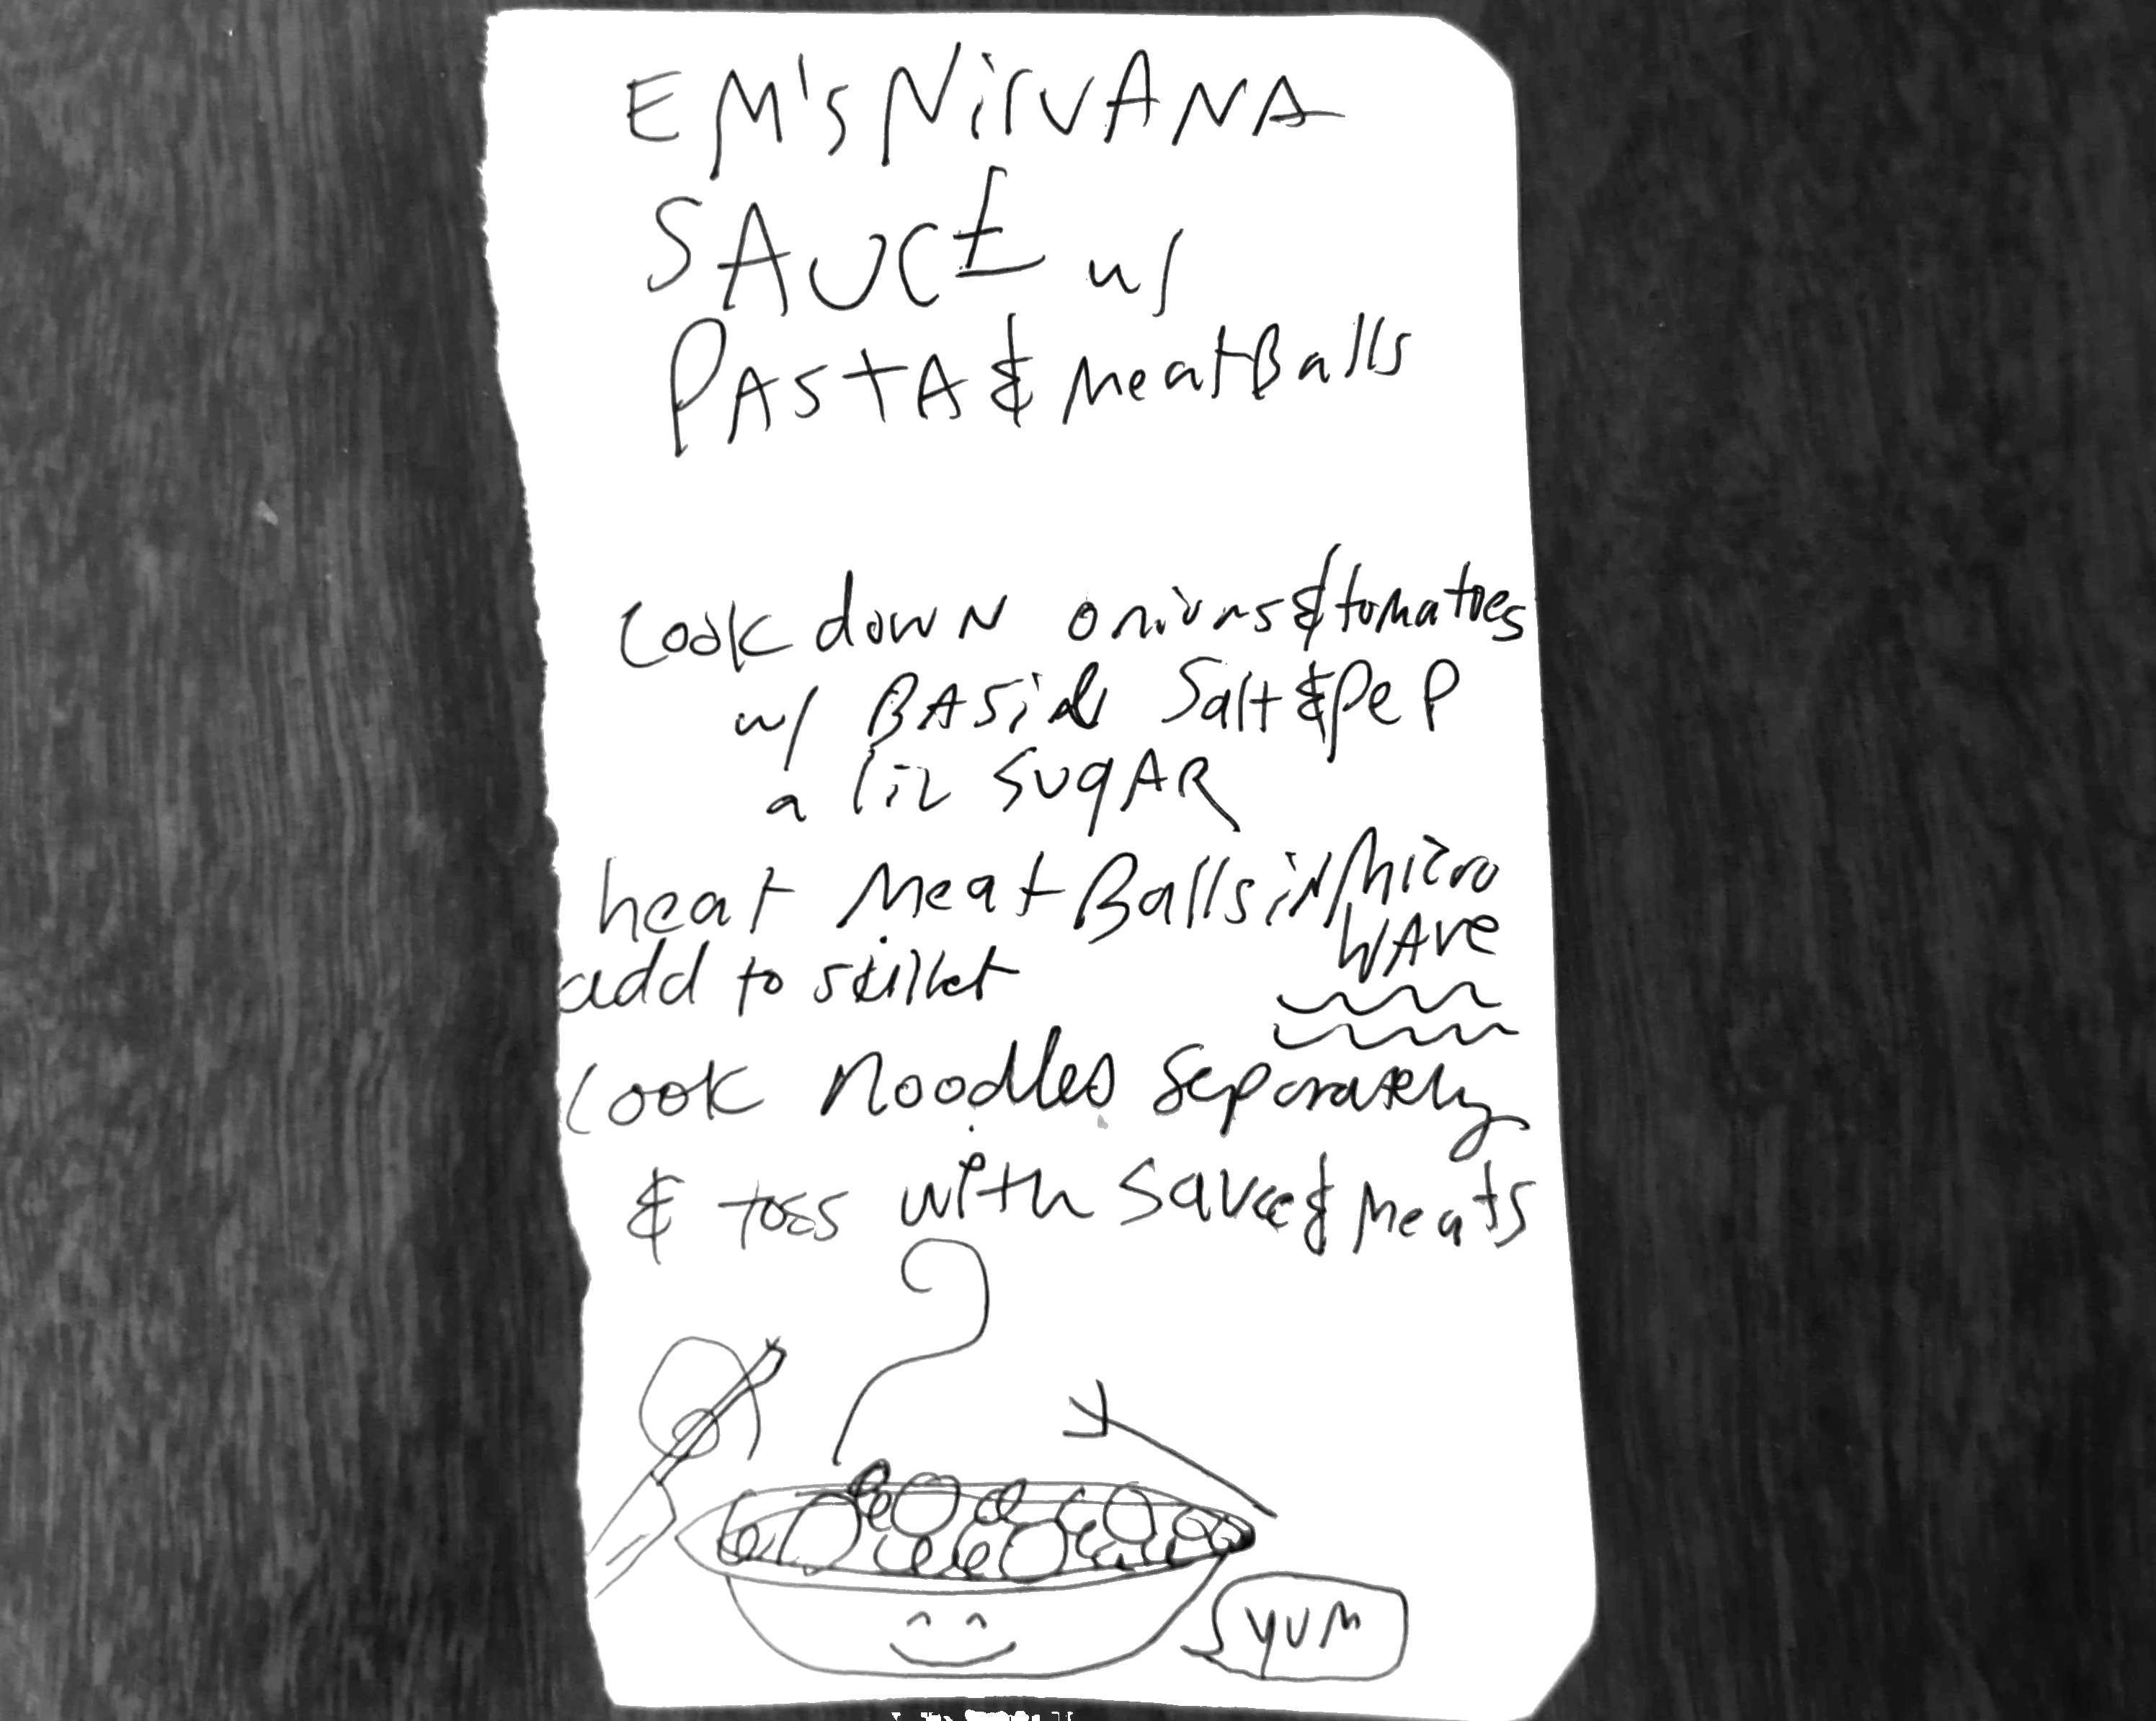 EM's NirVANA
SAUCE w/
PASTA & MeatBalls
Cook down onions & tomatoes
w/ BASil Salt & PeP
a lil SUgAR
heat MeatBalls iN Micro
WAve
add to skillet
Cook Noodles Separately
& toss with sauce & Meats
YUM